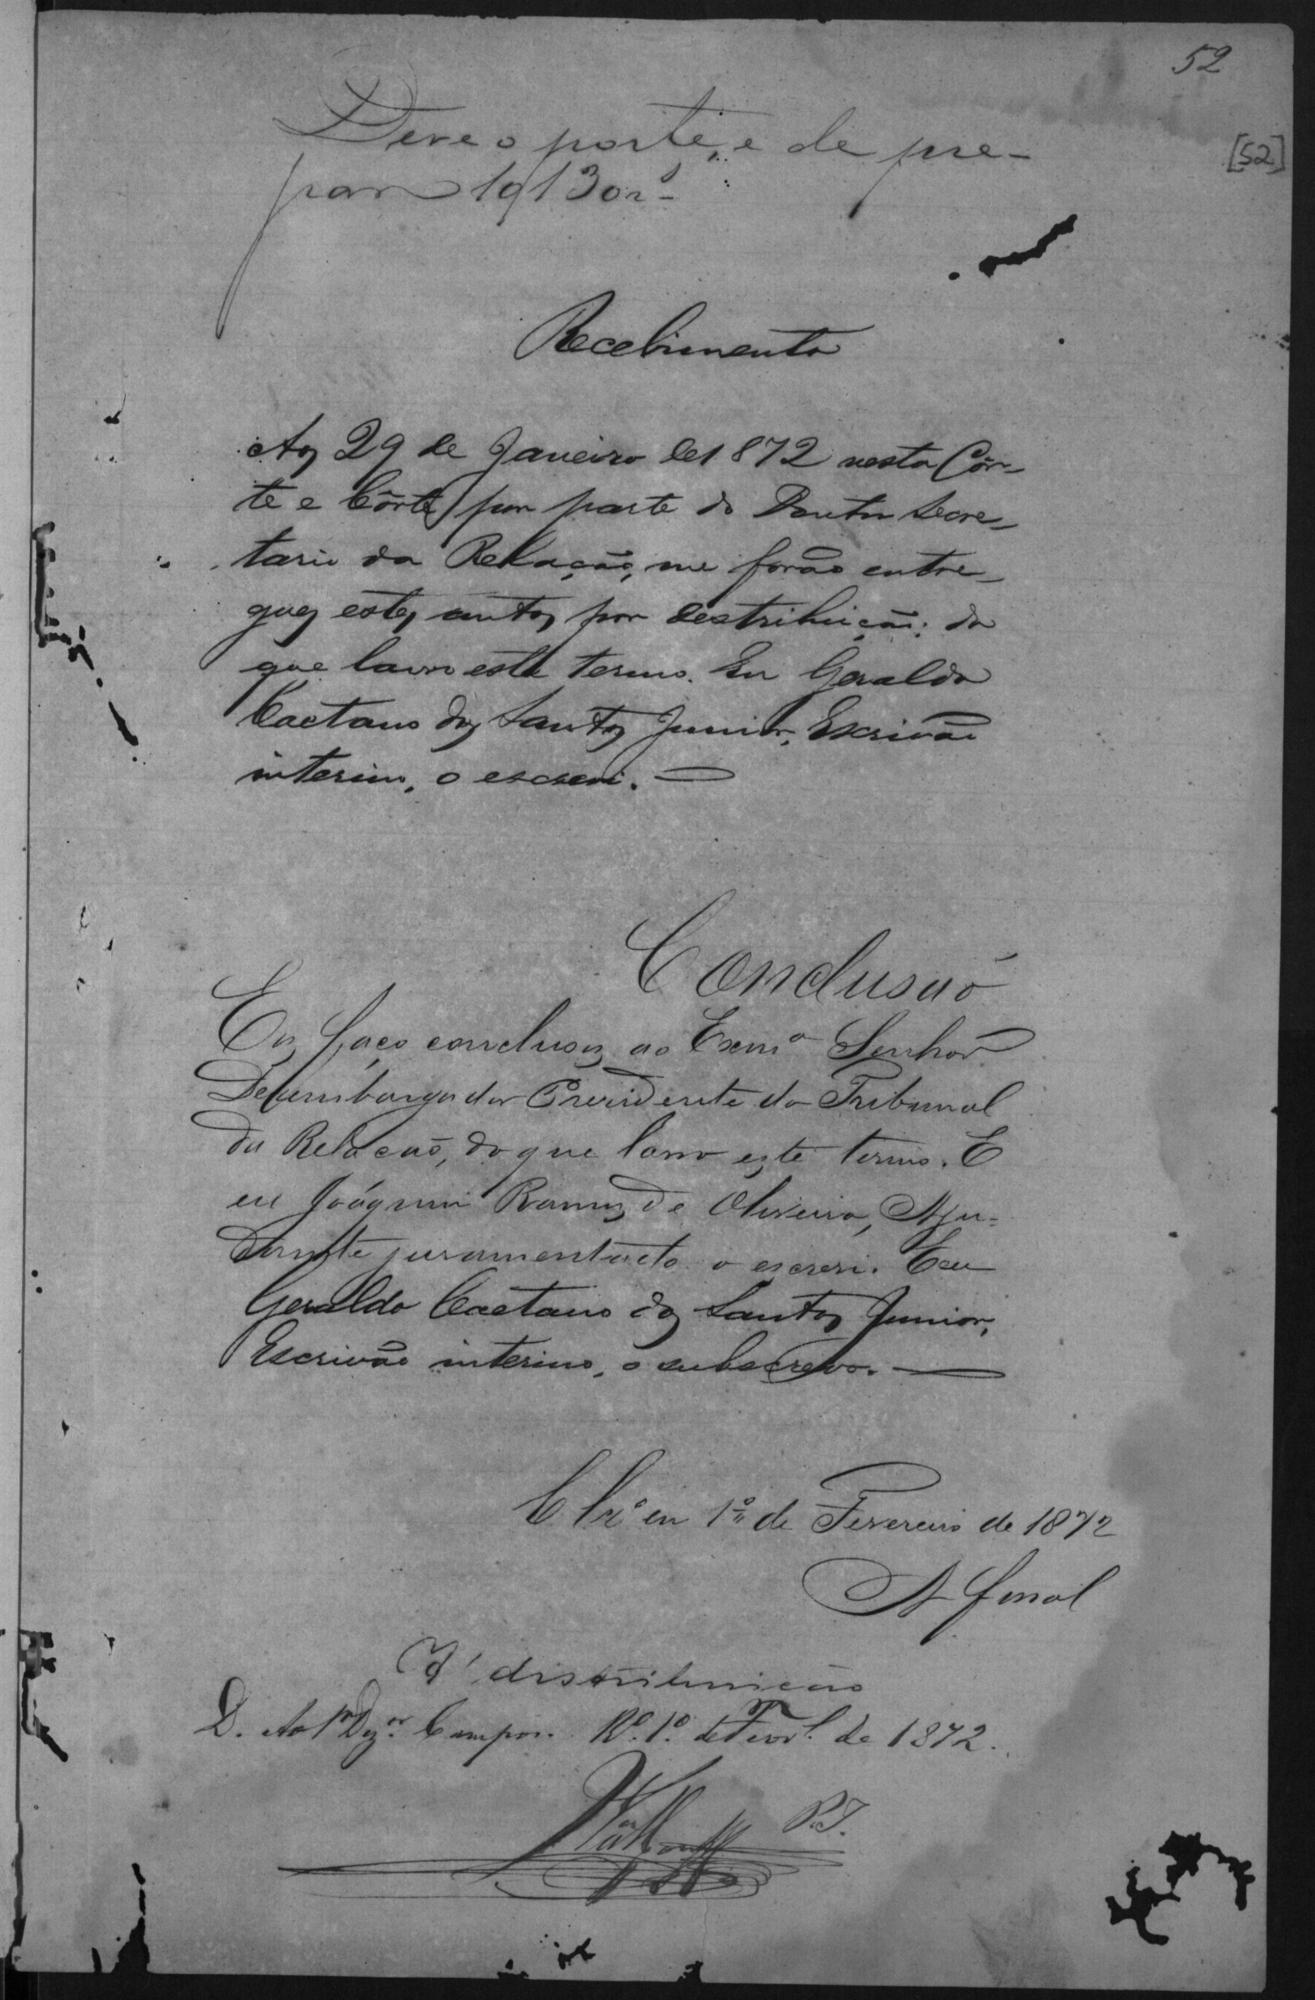 52
[52]
Deve o porte, e de pre-
paro 19130 rs
Recebimento
Aos 29 de Janeiro de 1872 nesta Côr-
te e Côrte, por parte do Doutor Secre-
tario da Relação, me forão entre-
gues estes autos por destribuição; do
que lavro este termo. Eu Geraldo
Caetano dos Santos Junior, Escrivão
interino, o escrevi.
Conclusaõ
Os faço conclusos ao Exmo Senhor
Desembargador Presidente do Tribunal
da Relacaõ, do que lavro este termo. E
eu Joáquim Ramos de Oliveira, Aju-
dante juramentado o escrevi. E eu
Geraldo Caetano dos Santos Junior,
Escrivão interino, o subscrevo.
Clzo em 1º de Fevereiro de 1872
A final
Á distribuicão
D. Ao Dezor Campos. Rº 1º de Fevro de 1872.
P.I.